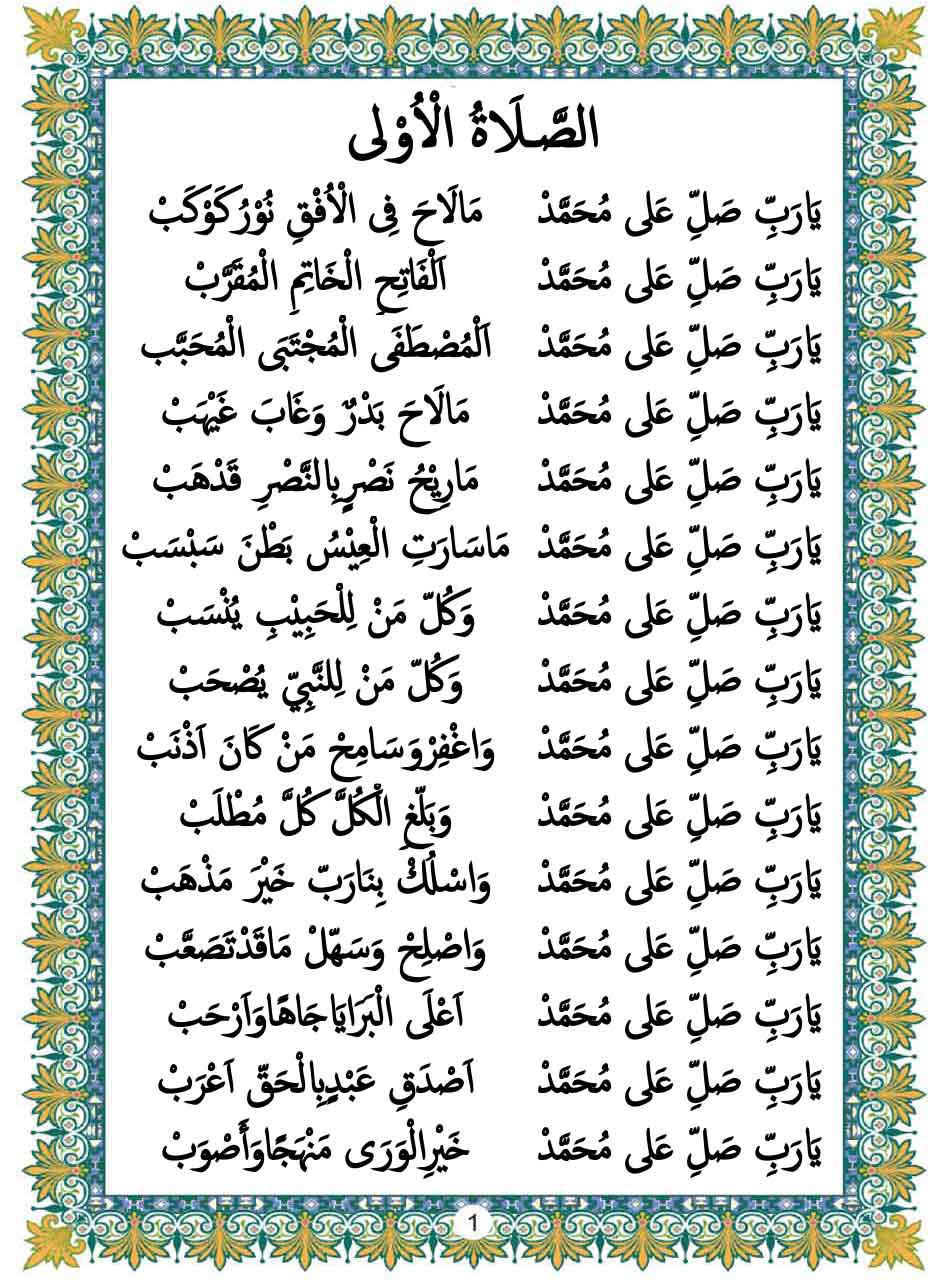 الصَّلَاةُ الْأُوْلى
يَارَبِّ صَلِّ عَلى مُحَمَّدْ مَالَاحَ فِى الْأُفْقِ نُوْرُكَوْكَبْ
يَارَبِّ صَلِّ عَلى مُحَمَّدْ اَلْفَاتِحِ الْخَاتِمِ الْمُقَرَّبْ
يَارَبِّ صَلِّ عَلى مُحَمَّدْ اَلْمُصْطَفَى الْمُجْتَبَى الْمُحَبَّب
يَارَبِّ صَلِّ عَلى مُحَمَّدْ مَالَاحَ بَدْرٌ وَغَابَ غَيْهَبْ
يَارَبِّ صَلِّ عَلى مُحَمَّدْ مَارِيْحُ نَصْرٍبِالنَّصْرِ قَدْهَبْ
يَارَبِّ صَلِّ عَلى مُحَمَّدْ مَاسَارَتِ الْعِيْسُ بَطْنَ سَبْسَبْ
يَارَبِّ صَلِّ عَلى مُحَمَّدْ وَكُلّ مَنْ لِلْحَبِيْبِ يُنْسَبْ
يَارَبِّ صَلِّ عَلى مُحَمَّدْ وَكُلّ مَنْ لِلنَّبِيّ يُصْحَبْ
يَارَبِّ صَلِّ عَلى مُحَمَّدْ وَاغْفِرْوَسَامِحْ مَنْ كَانَ اَذْنَبْ
يَارَبِّ صَلِّ عَلى مُحَمَّدْ وَبَلّغِ الْكُلَّ كُلَّ مُطْلَبْ
يَارَبِّ صَلِّ عَلى مُحَمَّدْ وَاسْلُكْ بِنَارَبّ خَيْرَ مَذْهَبْ
يَارَبِّ صَلِّ عَلى مُحَمَّدْ وَاصْلِحْ وَسَهّلْ مَاقَدْتَصَعَّبْ
يَارَبِّ صَلِّ عَلى مُحَمَّدْ اَعْلَى الْبَرَايَاجَاهًاوَاَرْحَبْ
يَارَبِّ صَلِّ عَلى مُحَمَّدْ اَصْدَقِ عَبْدٍبِالْحَقّ اَعْرَبْ
يَارَبِّ صَلِّ عَلى مُحَمَّدْ خَيْرِالْوَرَى مَنْهَجًاوَأَصْوَبْ
1